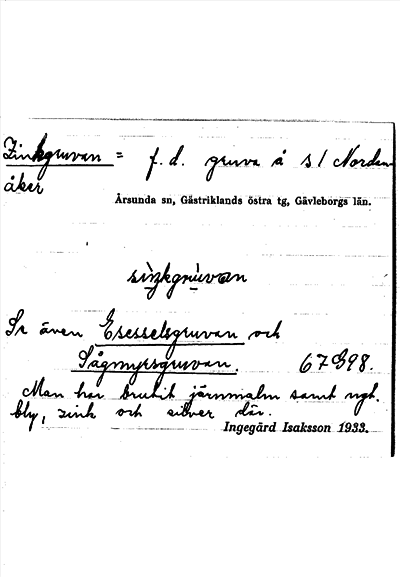 Zinkgruvan = f. d. gruva å s/ Nordan-
åker
Årsunda sn, Gästriklands östra tg, Gävleborgs län.
sìŋkgrùvan
Se även Esesselsgruvan och
Sågmyrsgruvan. 67998.
Man har brutit järnmalm samt ngt.
bly, zink och silver där.
Ingegärd Isaksson 1933.